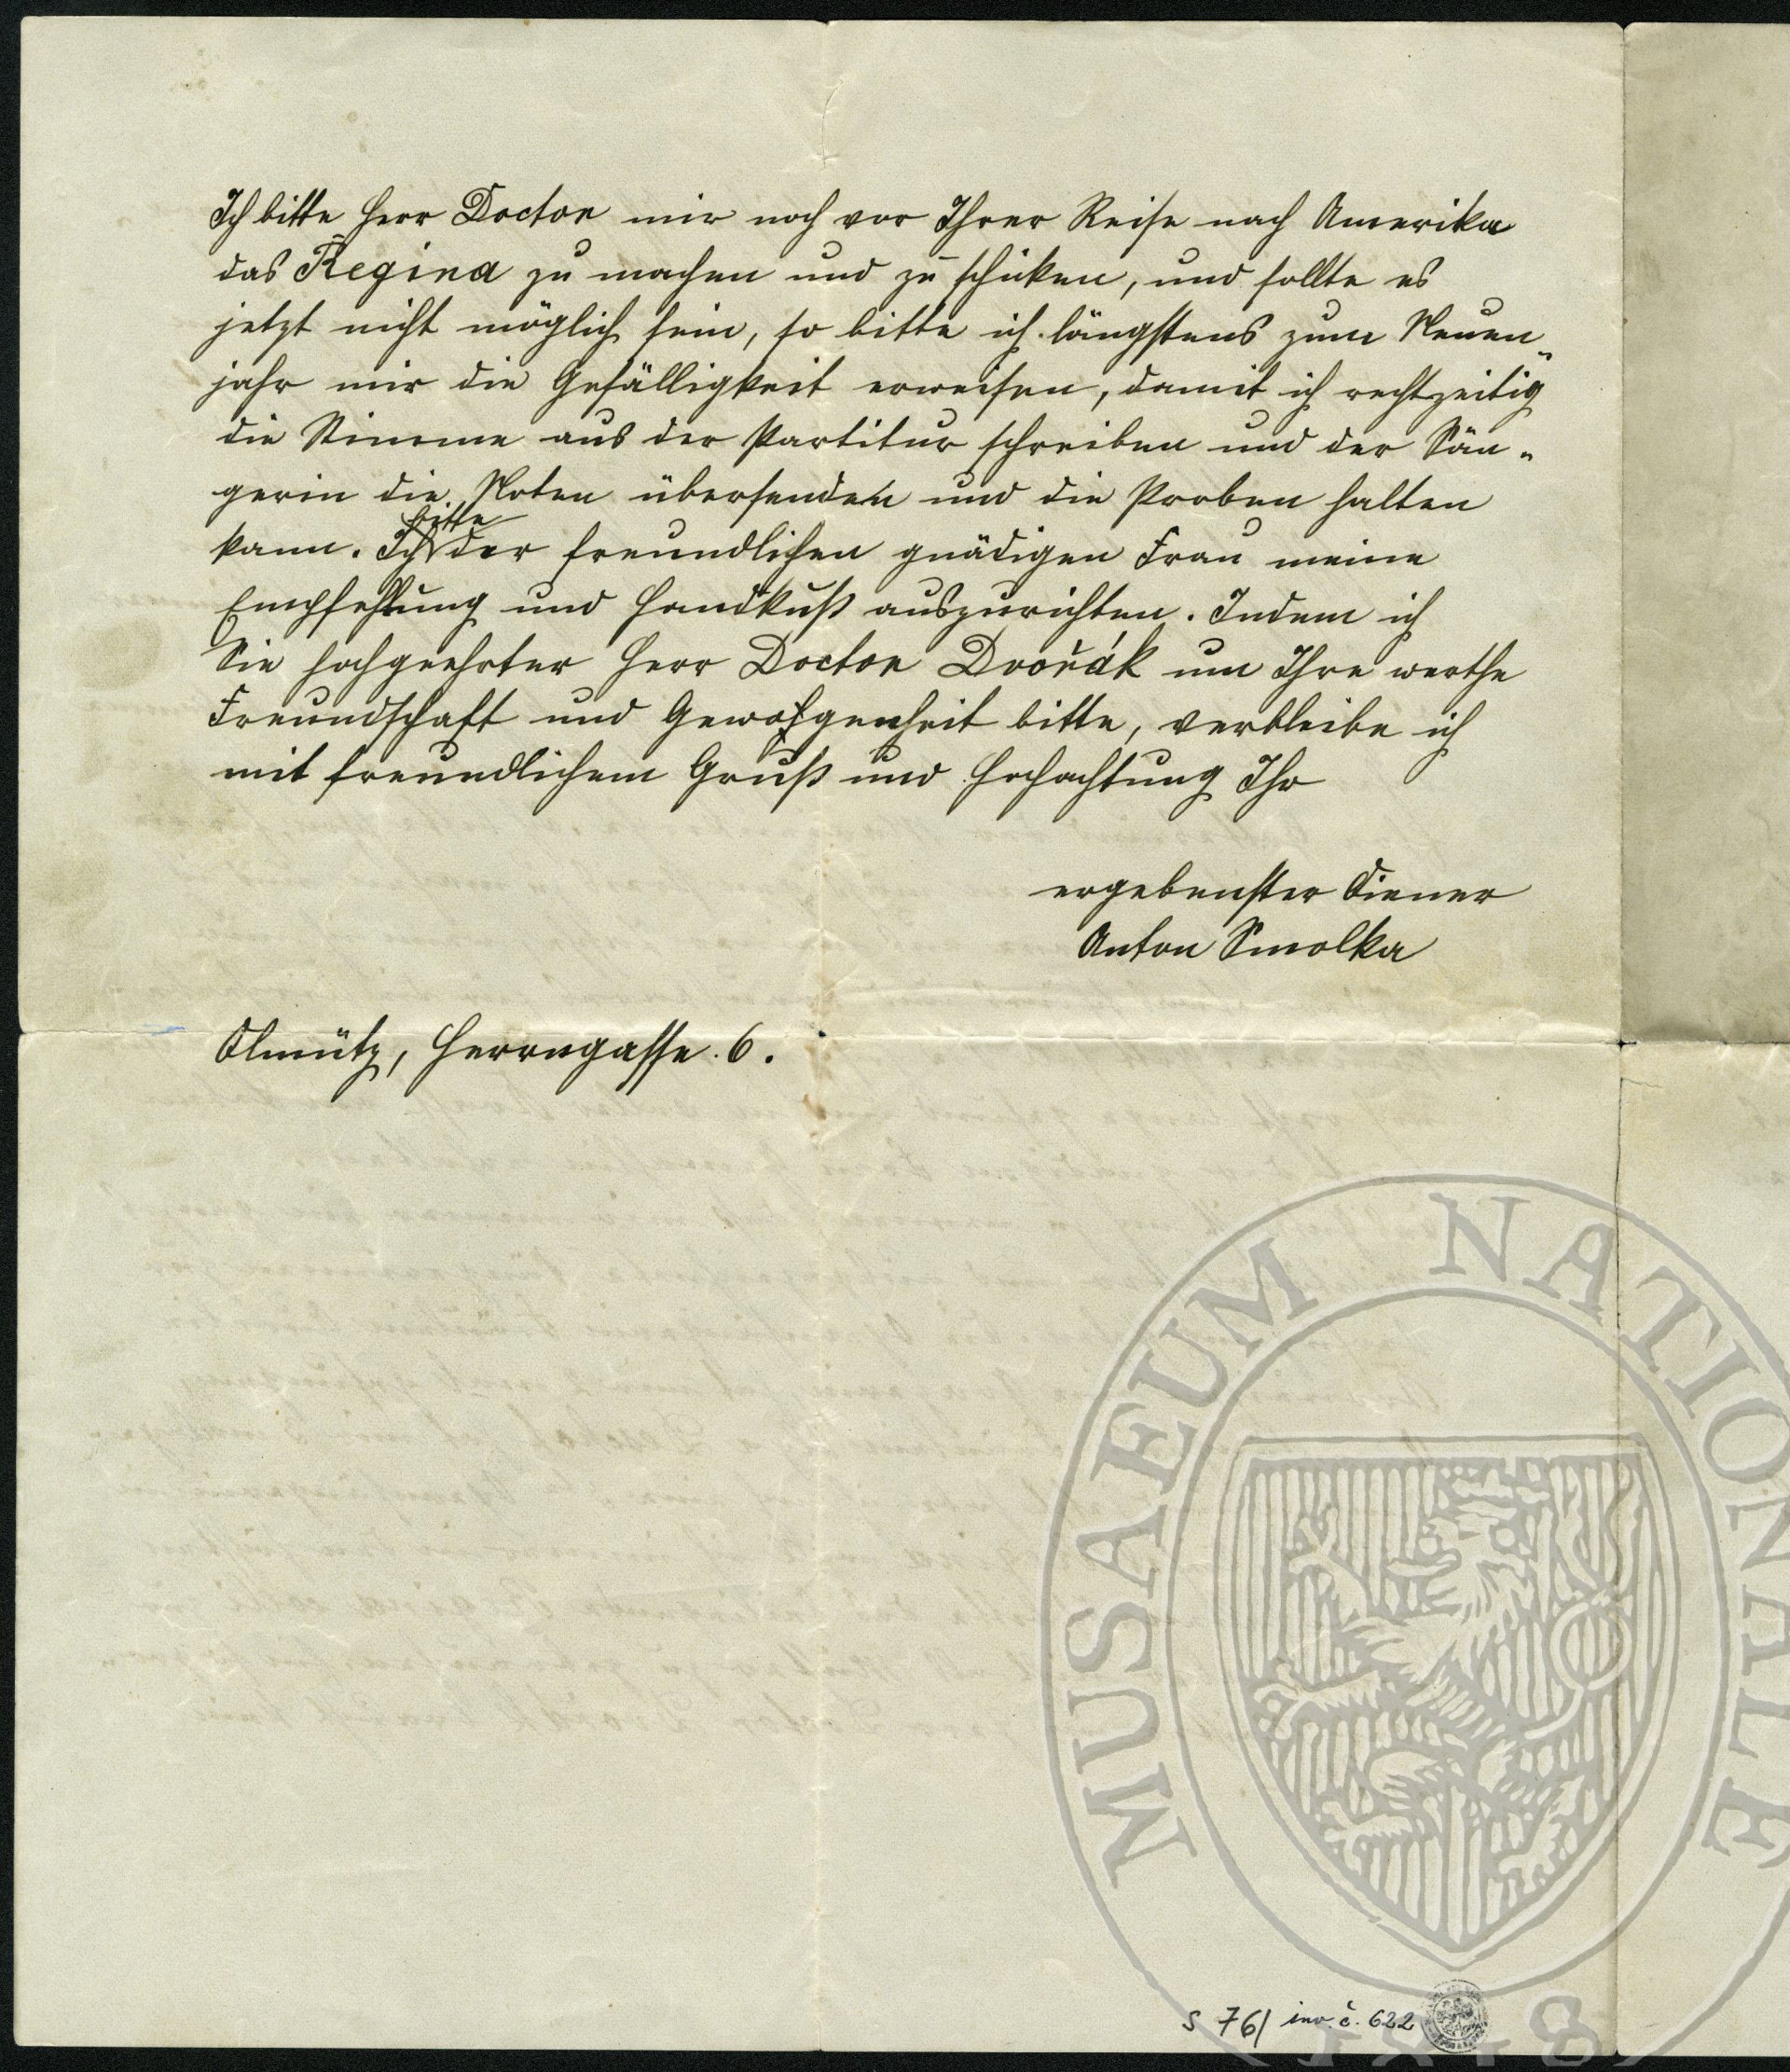 Ich bitte Herr Doctor mir noch vor Ihrer Reise nach Amerika
das Regina zu machen und zu schicken, und sollte es
jetzt nicht möglich sein, so bitte ich längstens zum Neuen„
jahr mir die Gefälligkeit erweisen, damit ich rechtzeitig
die Stimme aus der Partitur schreiben und der Sän„
gerin die Noten übersenden und die Proben halten
kann. Ich bitte der freundlichen gnädigen Frau meine
Empfehlung und Handkuß auszurichten. Indem ich
Sie hochgeehrter Herr Doctor Dvořák um Ihre werthe
Freundschaft und Gewogenheit bitte, verbleibe ich
mit freundlichem Gruß und Hochachtung Ihr
ergebenster Diener
Anton Smolka
Olmütz, Herrngasse 6.
MUSAEUM NATIONALE
S 76/ inv. č. 622